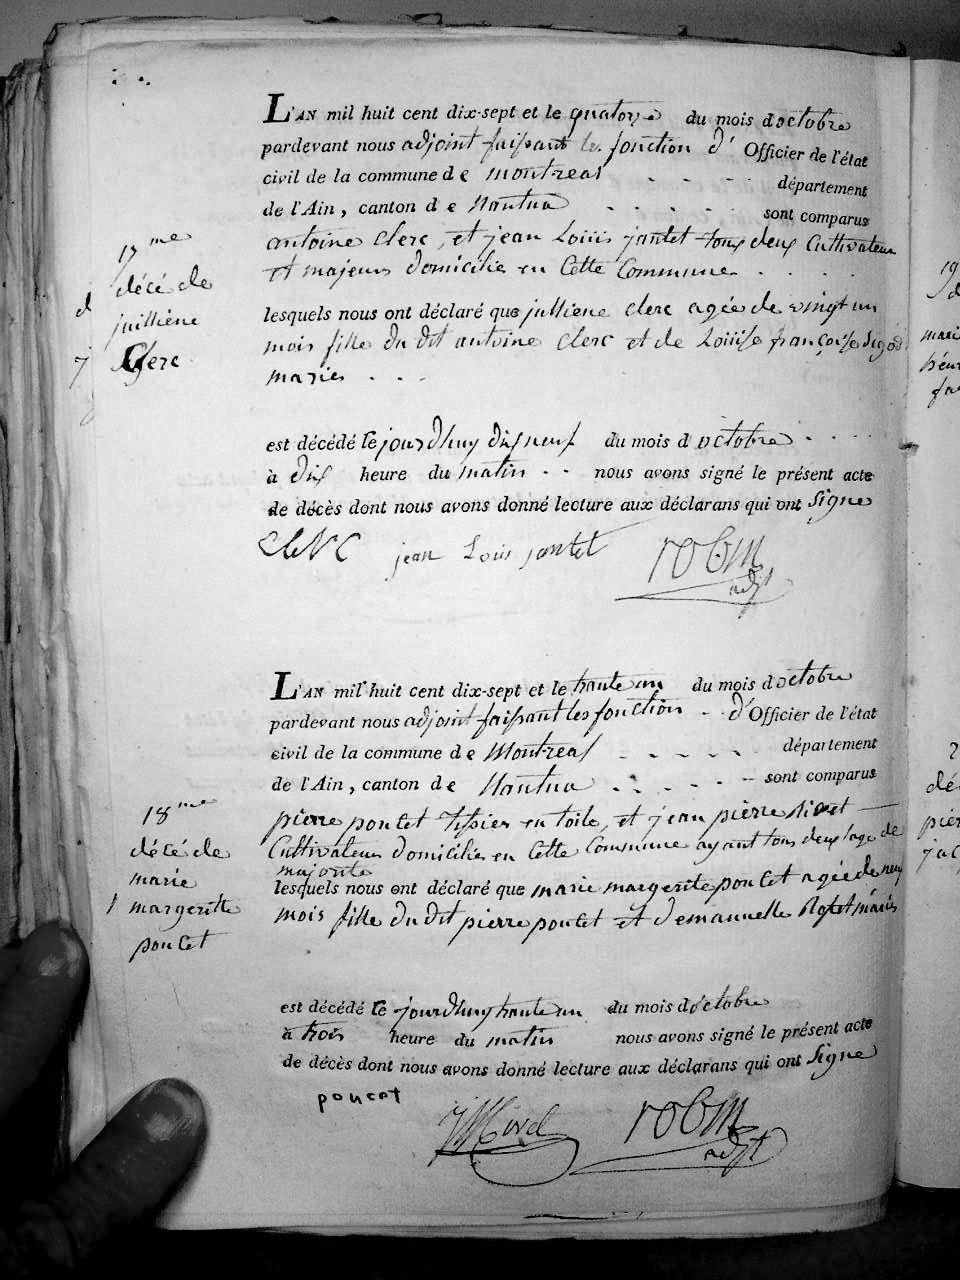 L'AN mil huit cent dix-sept et le quatorze du mois doctobre
pardevant nous adjoint faisant les fonction d' Officier de l'état
civil de la commune de montreal département
de l'Ain, canton de Nantua sont comparus
antoine Clerc, et jean Louis jantet tous deux Cultivateur
et majeurs domicilie en Cette Commune
17me
décé de
juilliene
Clerc
lesquels nous ont déclaré que julliene clerc agée de vingt un
mois fille du dit antoine Clerc et de Louise françoise
mariés
est décédé le jourdhuy dixneuf du mois d'octobre
à dix heure du matin nous avons signé le présent acte
de décès dont nous avons donné lecture aux déclarans qui ont signe
Clerc jean Louis jantet robin
adjt
L'AN mil huit cent dix-sept et le trante un du mois doctobre
pardevant nous adjoint faisant les fonction d'Officier de l'état
civil de la commune de Montreal département
de l'Ain, canton de Nantua sont comparus
pierre poncet tissier en toile, et jean pierre
Cultivateur domicilie en Cette Commune ayant tous deux lage de
majorité
18me
décé de
marie
margeritte
poncet
lesquels nous ont déclaré que marie margerite poncet agée de neuf
mois fille du dit pierre poncet et demanuelle mariés
est décédé le jourdhuy trante un du mois doctobre
à trois heure du matin nous avons signé le présent acte
de décès dont nous avons donné lecture aux déclarans qui ont signe
poncet robin
adjt